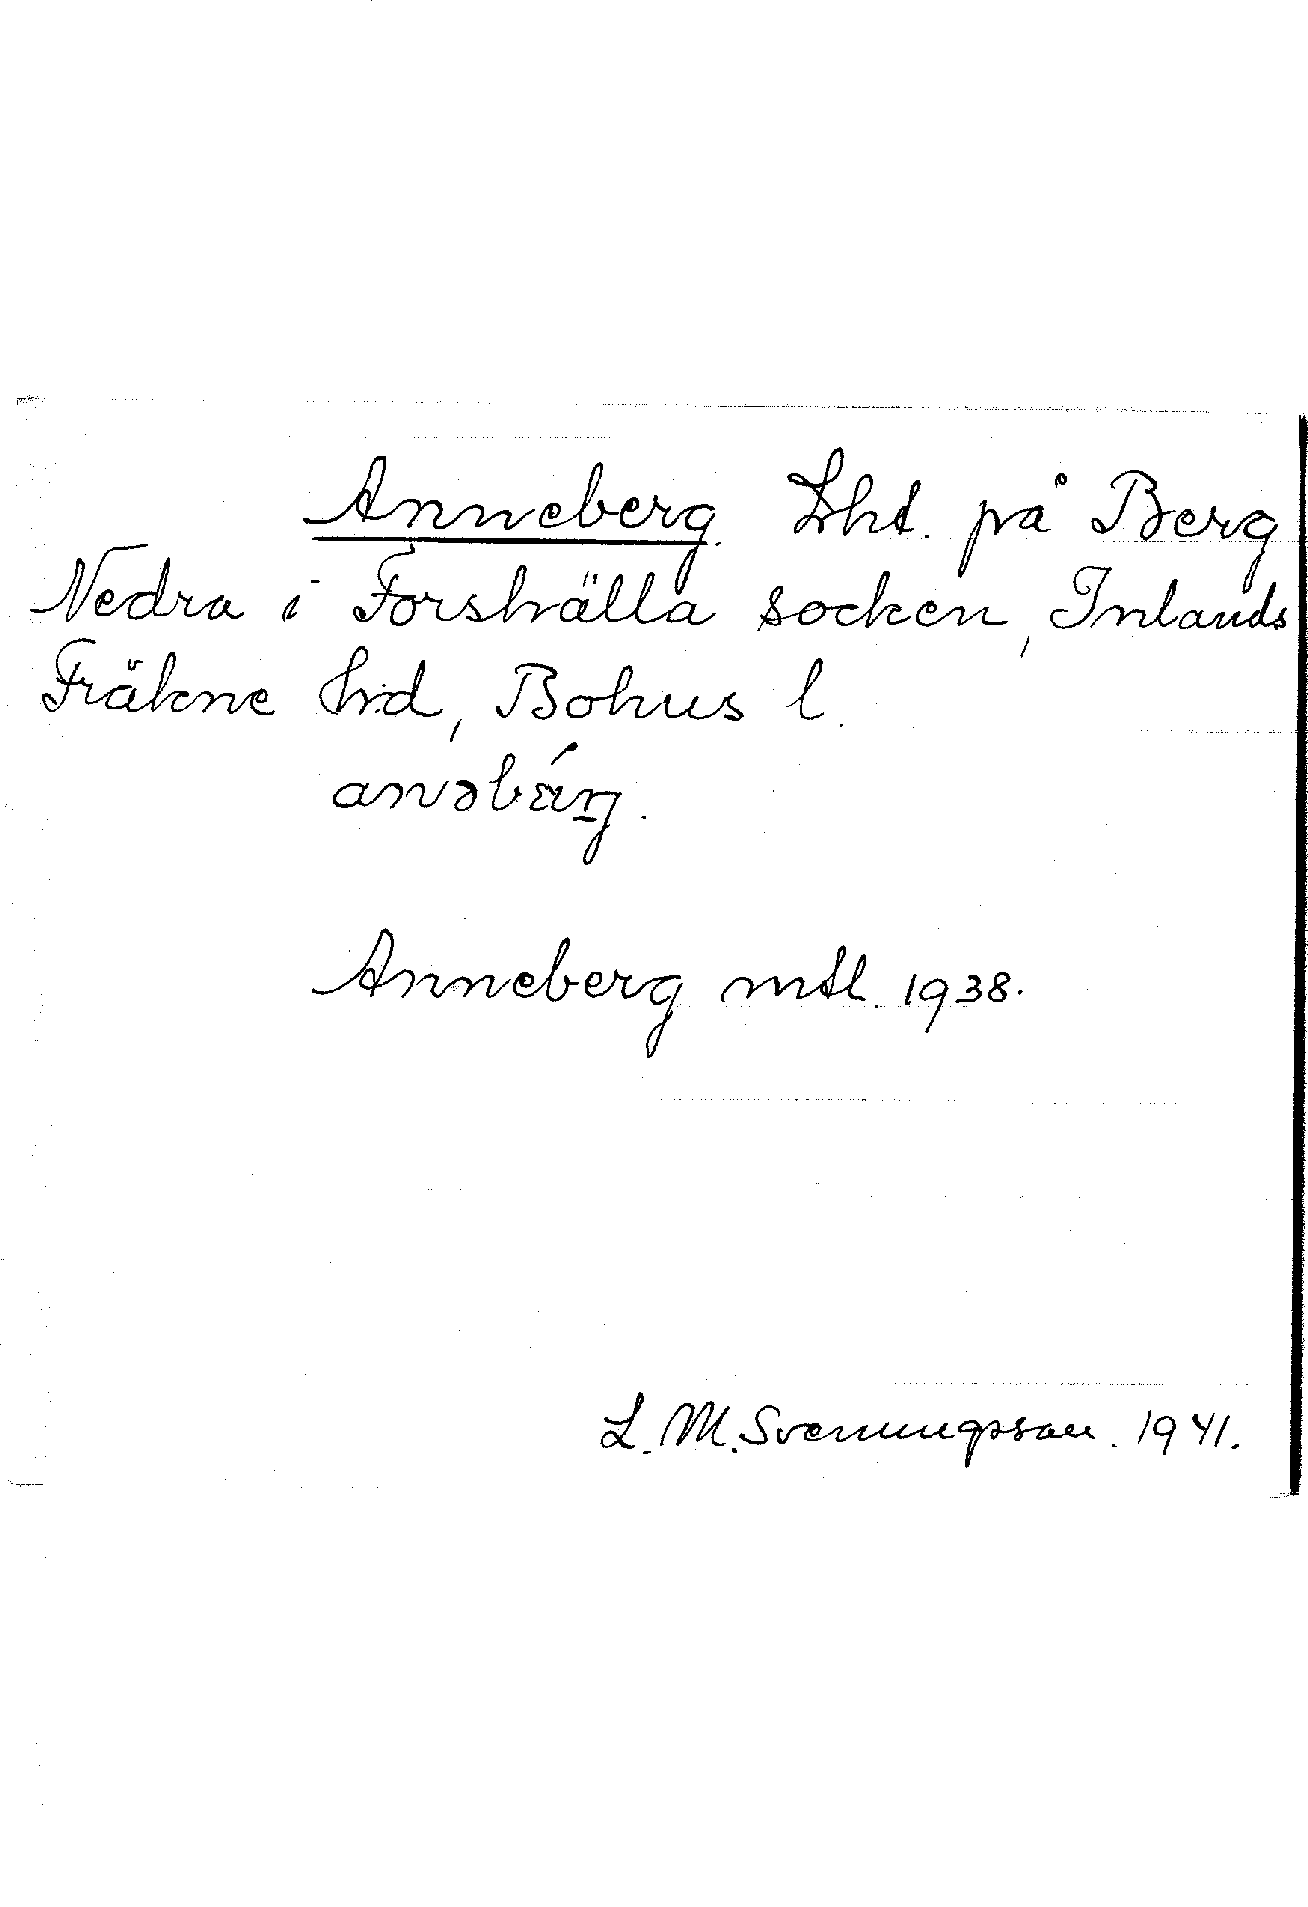 Anneberg. Lht. på Berg
Nedra i Forshälla socken, Inlands
Fräkne hd, Bohus l.
anəbárg.
Anneberg mtl. 1938.
L. M. Svenungsson. 1941.